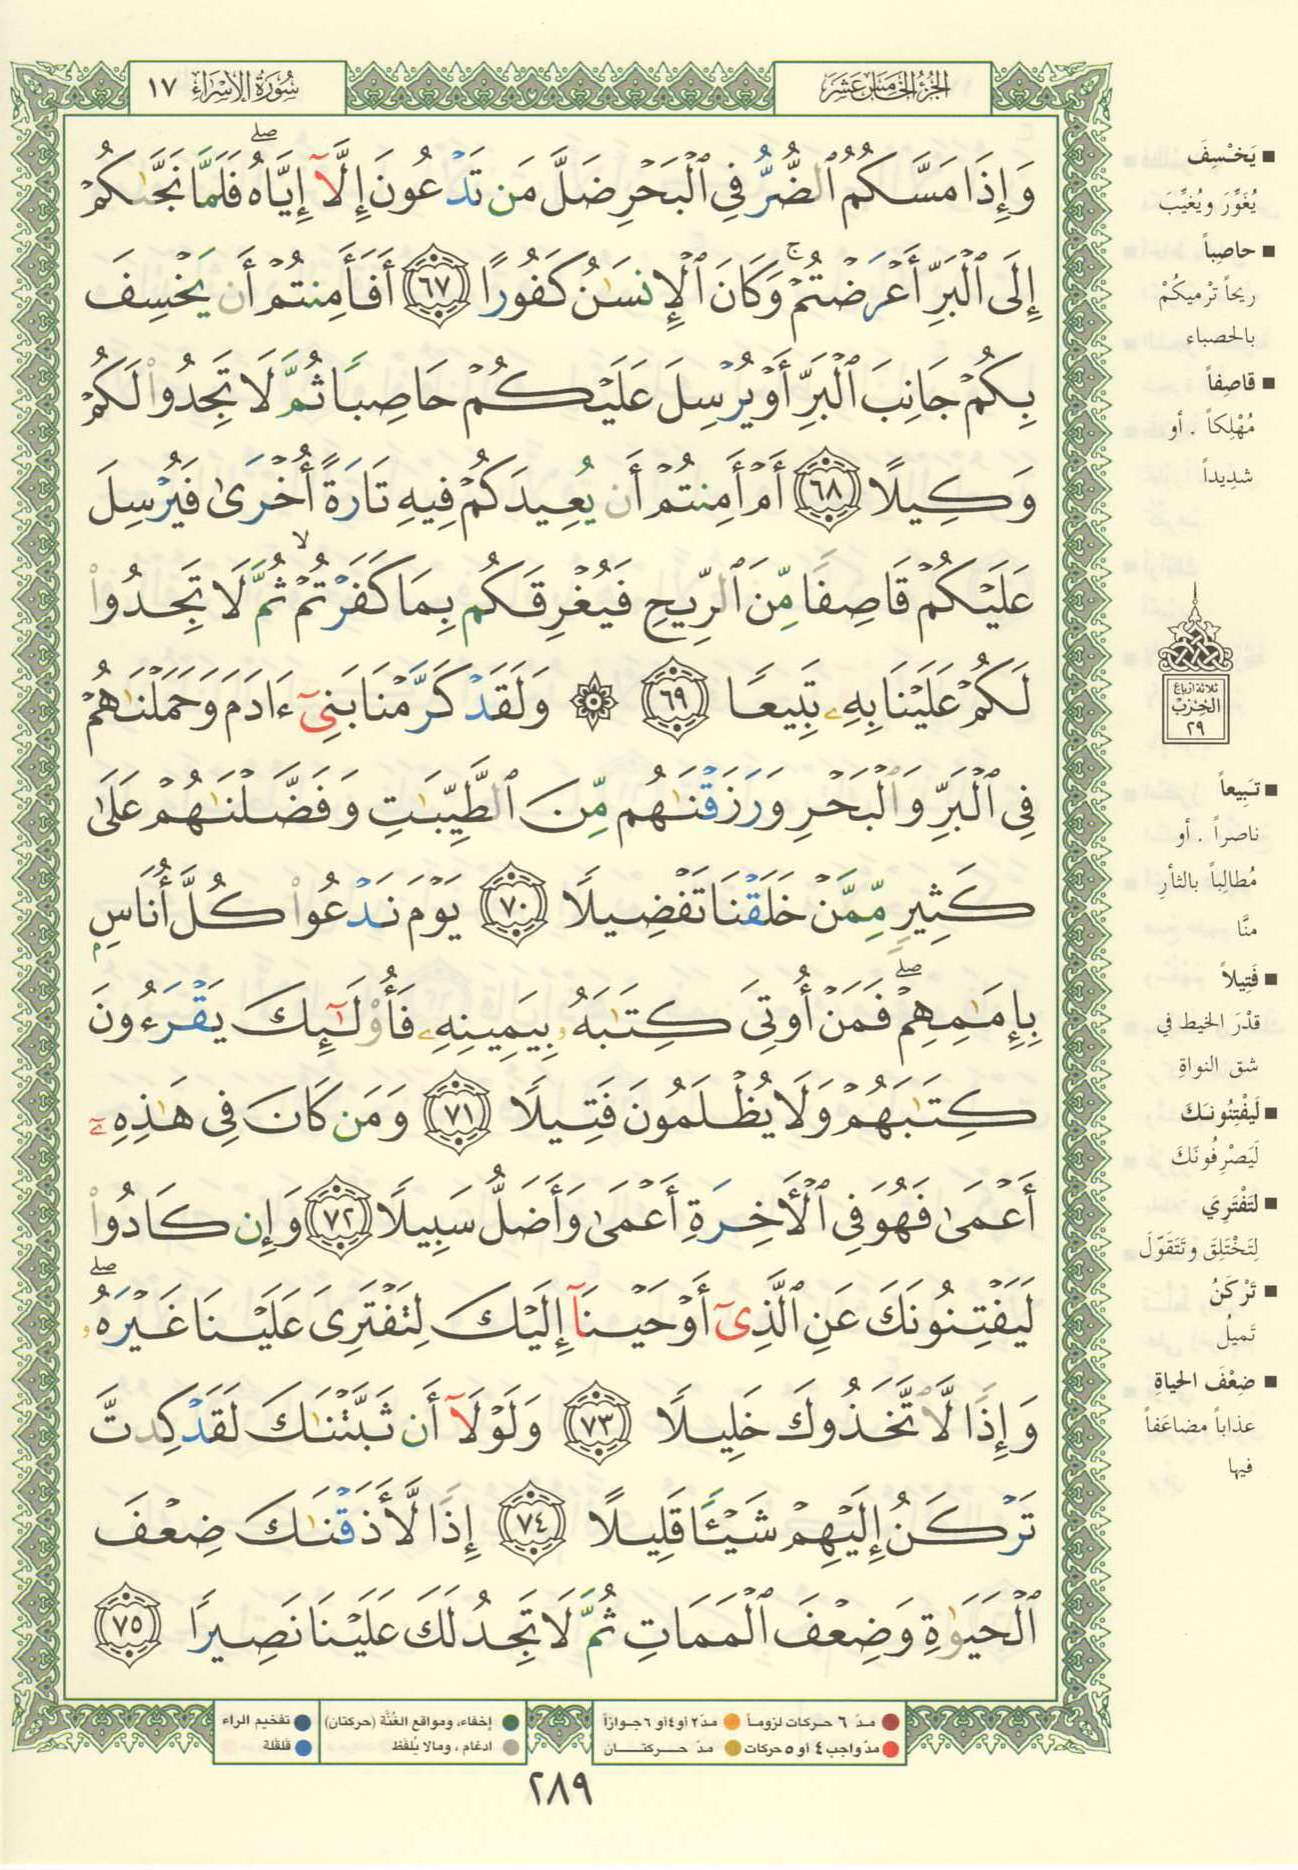 الجزء الخامس عشر
سورة الإسراء ١٧
وَإِذَا مَسَّكُمُ ٱلضُّرُّ فِي ٱلْبَحْرِ ضَلَّ مَن تَدْعُونَ إِلَّآ إِيَّاهُ ۖ فَلَمَّا نَجَّىٰكُمْ
إِلَى ٱلْبَرِّ أَعْرَضْتُمْ ۚ وَكَانَ ٱلْإِنسَٰنُ كَفُورًا ٦٧ أَفَأَمِنتُمْ أَن يَخْسِفَ
بِكُمْ جَانِبَ ٱلْبَرِّ أَوْ يُرْسِلَ عَلَيْكُمْ حَاصِبًا ثُمَّ لَا تَجِدُوا۟ لَكُمْ
وَكِيلًا ٦٨ أَمْ أَمِنتُمْ أَن يُعِيدَكُمْ فِيهِ تَارَةً أُخْرَىٰ فَيُرْسِلَ
عَلَيْكُمْ قَاصِفًا مِّنَ ٱلرِّيحِ فَيُغْرِقَكُم بِمَا كَفَرْتُمْ ۙ ثُمَّ لَا تَجِدُوا۟
لَكُمْ عَلَيْنَا بِهِۦ تَبِيعًا ٦٩ ۞ وَلَقَدْ كَرَّمْنَا بَنِىٓ ءَادَمَ وَحَمَلْنَٰهُمْ
فِي ٱلْبَرِّ وَٱلْبَحْرِ وَرَزَقْنَٰهُم مِّنَ ٱلطَّيِّبَٰتِ وَفَضَّلْنَٰهُمْ عَلَىٰ
كَثِيرٍ مِّمَّنْ خَلَقْنَا تَفْضِيلًا ٧٠ يَوْمَ نَدْعُوا۟ كُلَّ أُنَاسٍۭ
بِإِمَٰمِهِمْ ۖ فَمَنْ أُوتِىَ كِتَٰبَهُۥ بِيَمِينِهِۦ فَأُو۟لَٰٓئِكَ يَقْرَءُونَ
كِتَٰبَهُمْ وَلَا يُظْلَمُونَ فَتِيلًا ٧١ وَمَن كَانَ فِى هَٰذِهِۦٓ
أَعْمَىٰ فَهُوَ فِي ٱلْأَخِرَةِ أَعْمَىٰ وَأَضَلُّ سَبِيلًا ٧٢ وَإِن كَادُوا۟
لَيَفْتِنُونَكَ عَنِ ٱلَّذِىٓ أَوْحَيْنَآ إِلَيْكَ لِتَفْتَرِىَ عَلَيْنَا غَيْرَهُۥ ۖ
وَإِذًا لَّٱتَّخَذُوكَ خَلِيلًا ٧٣ وَلَوْلَآ أَن ثَبَّتْنَٰكَ لَقَدْ كِدتَّ
تَرْكَنُ إِلَيْهِمْ شَيْـًٔا قَلِيلًا ٧٤ إِذًا لَّأَذَقْنَٰكَ ضِعْفَ
ٱلْحَيَوٰةِ وَضِعْفَ ٱلْمَمَاتِ ثُمَّ لَا تَجِدُ لَكَ عَلَيْنَا نَصِيرًا ٧٥
■ يَخْسِفَ
يُغَوِّرَ ويُغَيِّبَ
■ حاصِباً
ريحاً تَرْميكُمْ
بالحصباء
■ قاصِفاً
مُهْلِكاً . أو
شديداً
ثلاثة أرباع
الحِزب
٢٩
■ تَبِيعاً
ناصراً . أو
مُطالِباً بالثأرِ
منَّا
■ فَتِيلاً
قدْرَ الخيط في
شق النواةِ
■ لَيَفْتِنُونكَ
لَيَصْرِفُونَكَ
■ لتَفْتَرِيَ
لِتَخْتَلِقَ وتَتَقَوّلَ
■ تَرْكَنُ
تَميلُ
■ ضِعْفَ الحياةِ
عذاباً مضاعَفاً
فيها
مدّ ٦ حركات لزوماً مدّ ٢ أو ٤ أو ٦ جوازاً
مدّ واجب ٤ أو ٥ حركات مدّ حركتان
إخفاء، ومواقع الغُنَّة (حركتان) تفخيم الراء
ادغام ، وما لا يُلفَظ قلقلة
٢٨٩